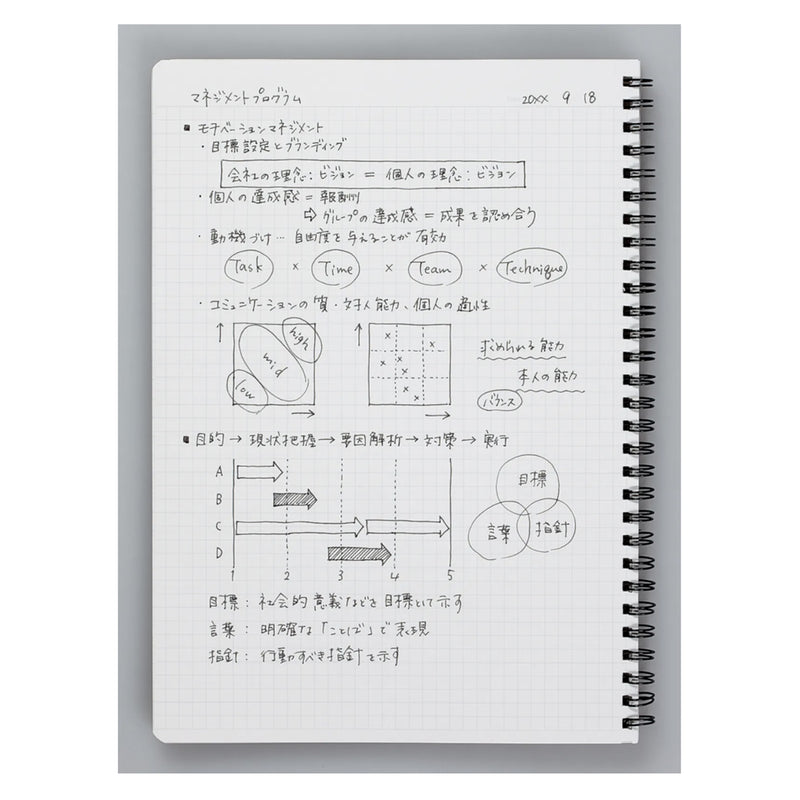 マネジメントプログラム 20XX 9 18
■ モチベーションマネジメント
・目標設定とブランディング
会社の理念：ビジョン ＝ 個人の理念：ビジョン
・個人の達成感 ＝ 報酬
⇨ グループの達成感 ＝ 成果を認め合う
・動機づけ… 自由度を与えることが有効
Task × Time × Team × Technique
・コミュニケーションの質・対人能力、個人の適性
high
mid
low
求められる能力
本人の能力
バランス
■ 目的 → 現状把握 → 要因解析 → 対策 → 実行
A
B
C
D
1 2 3 4 5
目標
言葉 指針
目標：社会的意義などを目標として示す
言葉：明確な「ことば」で表現
指針：行動すべき指針を示す